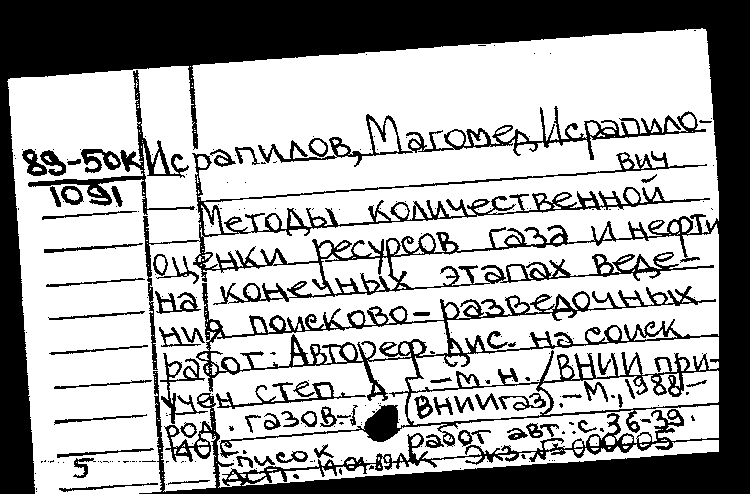 89-50к Исрапилов, Магомед Исрапило-
1091 вич
Методы количественной
оценки ресурсов газа и нефти
на конечных этапах веде-
ния поисково-разведочных
работ: Автореф. дис. на соиск.
учен степ. д. г.-м. н. / ВНИИ при-
род. газов. (ВНИИгаз). – М., 1988. –
40 с.
Список работ авт.: с. 36-39.
5 Асп. 14.04.89 АК Экз. № 000005